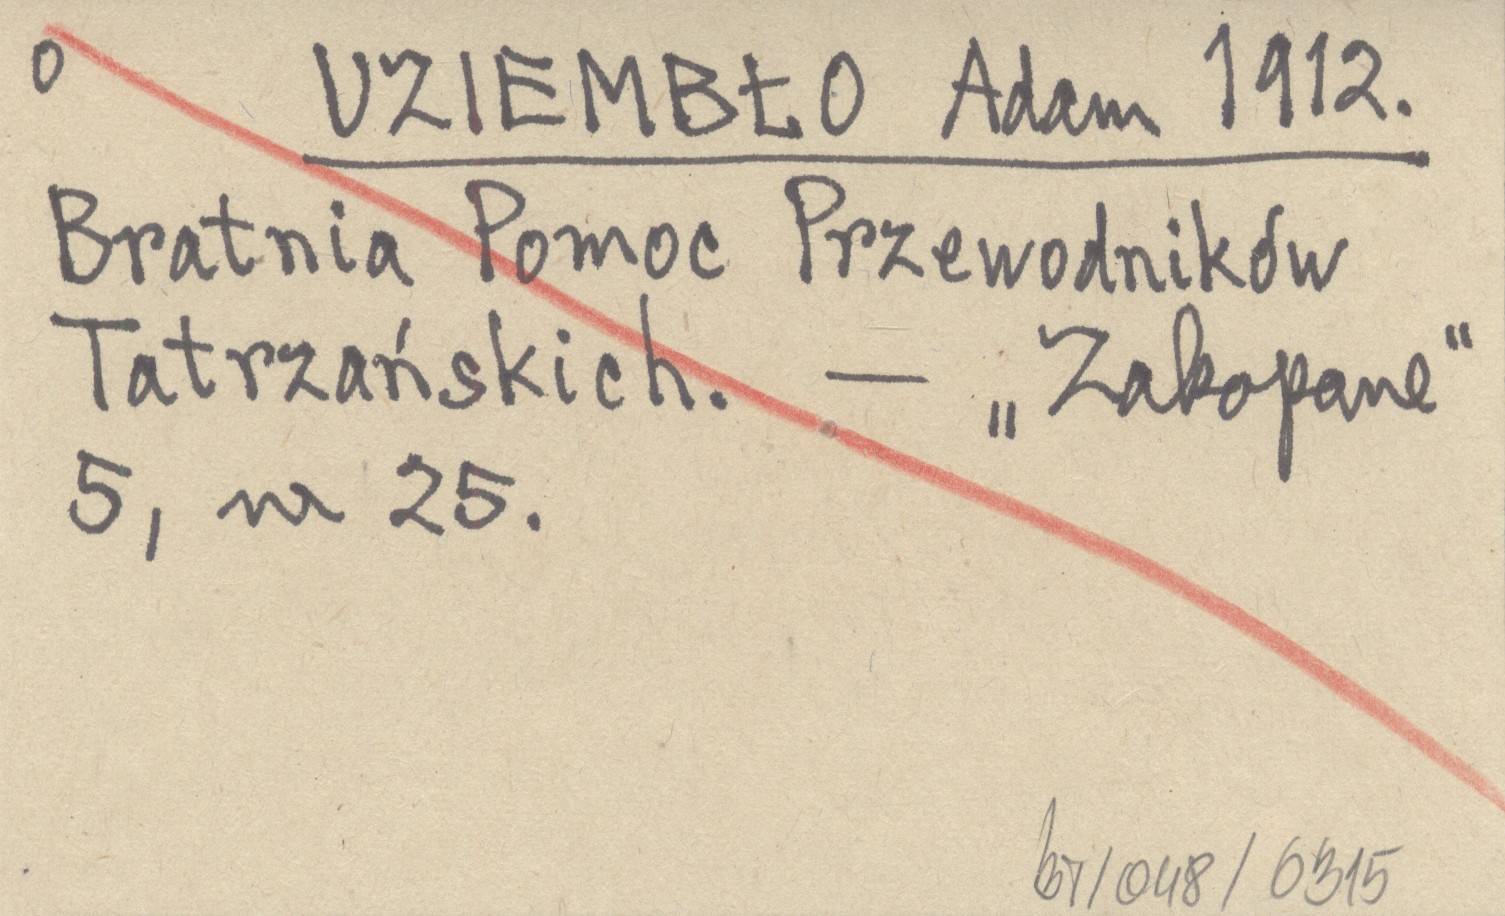 o UZIEMBŁO Adam 1912.
Bratnia Pomoc Przewodników
Tatrzańskich. — „Zakopane"
5, nr 25.
bt/048/0315